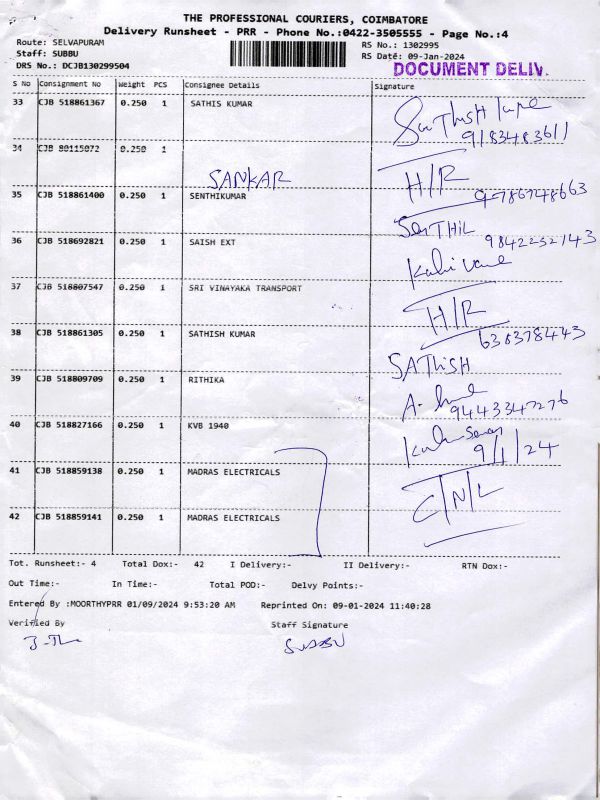 THE PROFESSIONAL COURIERS, COIMBATORE
Delivery Runsheet - PRR - Phone No.:0422-3505555 - Page No.:4
Route: SELVAPURAM
Staff: SUBBU
DRS No.: DCJB130299504
RS No.: 1302995
RS Date: 09-Jan-2024
DOCUMENT DELIV.
S No Consignment No Weight PCS Consignee Details Signature
33 CJB 518861367 0.250 1 SATHIS KUMAR
9183483611
34 CJB 80115072 0.250 1 SANKAR H/R
35 CJB 518861400 0.250 1 SENTHIKUMAR
SenTHIL
36 CJB 518692821 0.250 1 SAISH EXT 9842252143
37 CJB 518807547 0.250 1 SRI VINAYAKA TRANSPORT H/R
38 CJB 518861305 0.250 1 SATHISH KUMAR 638378443
SAThiSH
39 CJB 518809709 0.250 1 RITHIKA
9443347276
40 CJB 518827166 0.250 1 KVB 1940
9/1/24
41 CJB 518859138 0.250 1 MADRAS ELECTRICALS C/N/L
42 CJB 518859141 0.250 1 MADRAS ELECTRICALS
Tot. Runsheet:- 4 Total Dox:- 42 I Delivery:- II Delivery:- RTN Dox:-
Out Time:- In Time:- Total POD:- Delvy Points:-
Entered By :MOORTHYPRR 01/09/2024 9:53:20 AM Reprinted On: 09-01-2024 11:40:28
Verified By Staff Signature
SUBBU